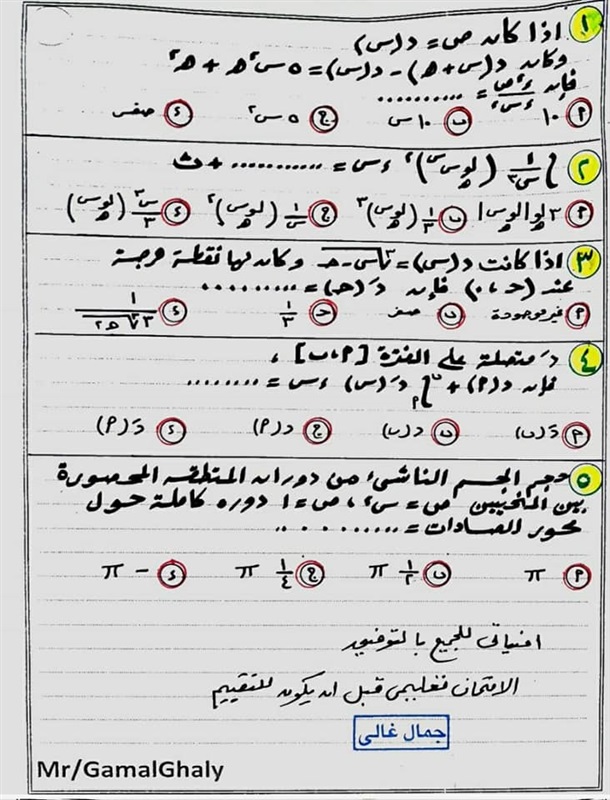 ١ اذا كان ص = د(س)
وكان د(س+ه) - د(س) = ٥ س٢ ه + ه٢
فإن ء٢ص/ءس٢ = ..........
أ ١٠ ب ١٠ س ج ٥ س٢ د صفر
٢ ∫ ١/س٣ (لو ه س)٢ ءس = ........... + ث
أ ٣ لو ه |لو ه س| ب ١/٣ (لو ه س)٣ ج ١/س (لو ه س)٢ د س٣/٣ (لو ه س)
٣ اذا كانت د(س) = ٣√س-حـ وكان لها نقطة حرجة
عند (حـ ، ٠) فإن دَ(حـ) = ..........
أ غير موجودة ب صفر حـ ١/٣ د
٤ دَ متصلة على الفترة [أ ، ب] ،
فإن د(أ) + ب∫أ دَ(س) ءس = ........
أ دَ(ب) ب د(ب) ج د(أ) د دَ(أ)
٥ حجم الجسم الناشىء من دوران المنطقة المحصورة
بين المنحنيين ص = س٢ ، ص = ١ دوره كاملة حول
محور الصادات = ..........
أ π ب ١/٢ π ج ١/٤ π د - π
امنياتى للجميع بالتوفيق
الامتحان تعليمى قبل ان يكون للتقييم
جمال غالى
Mr/GamalGhaly